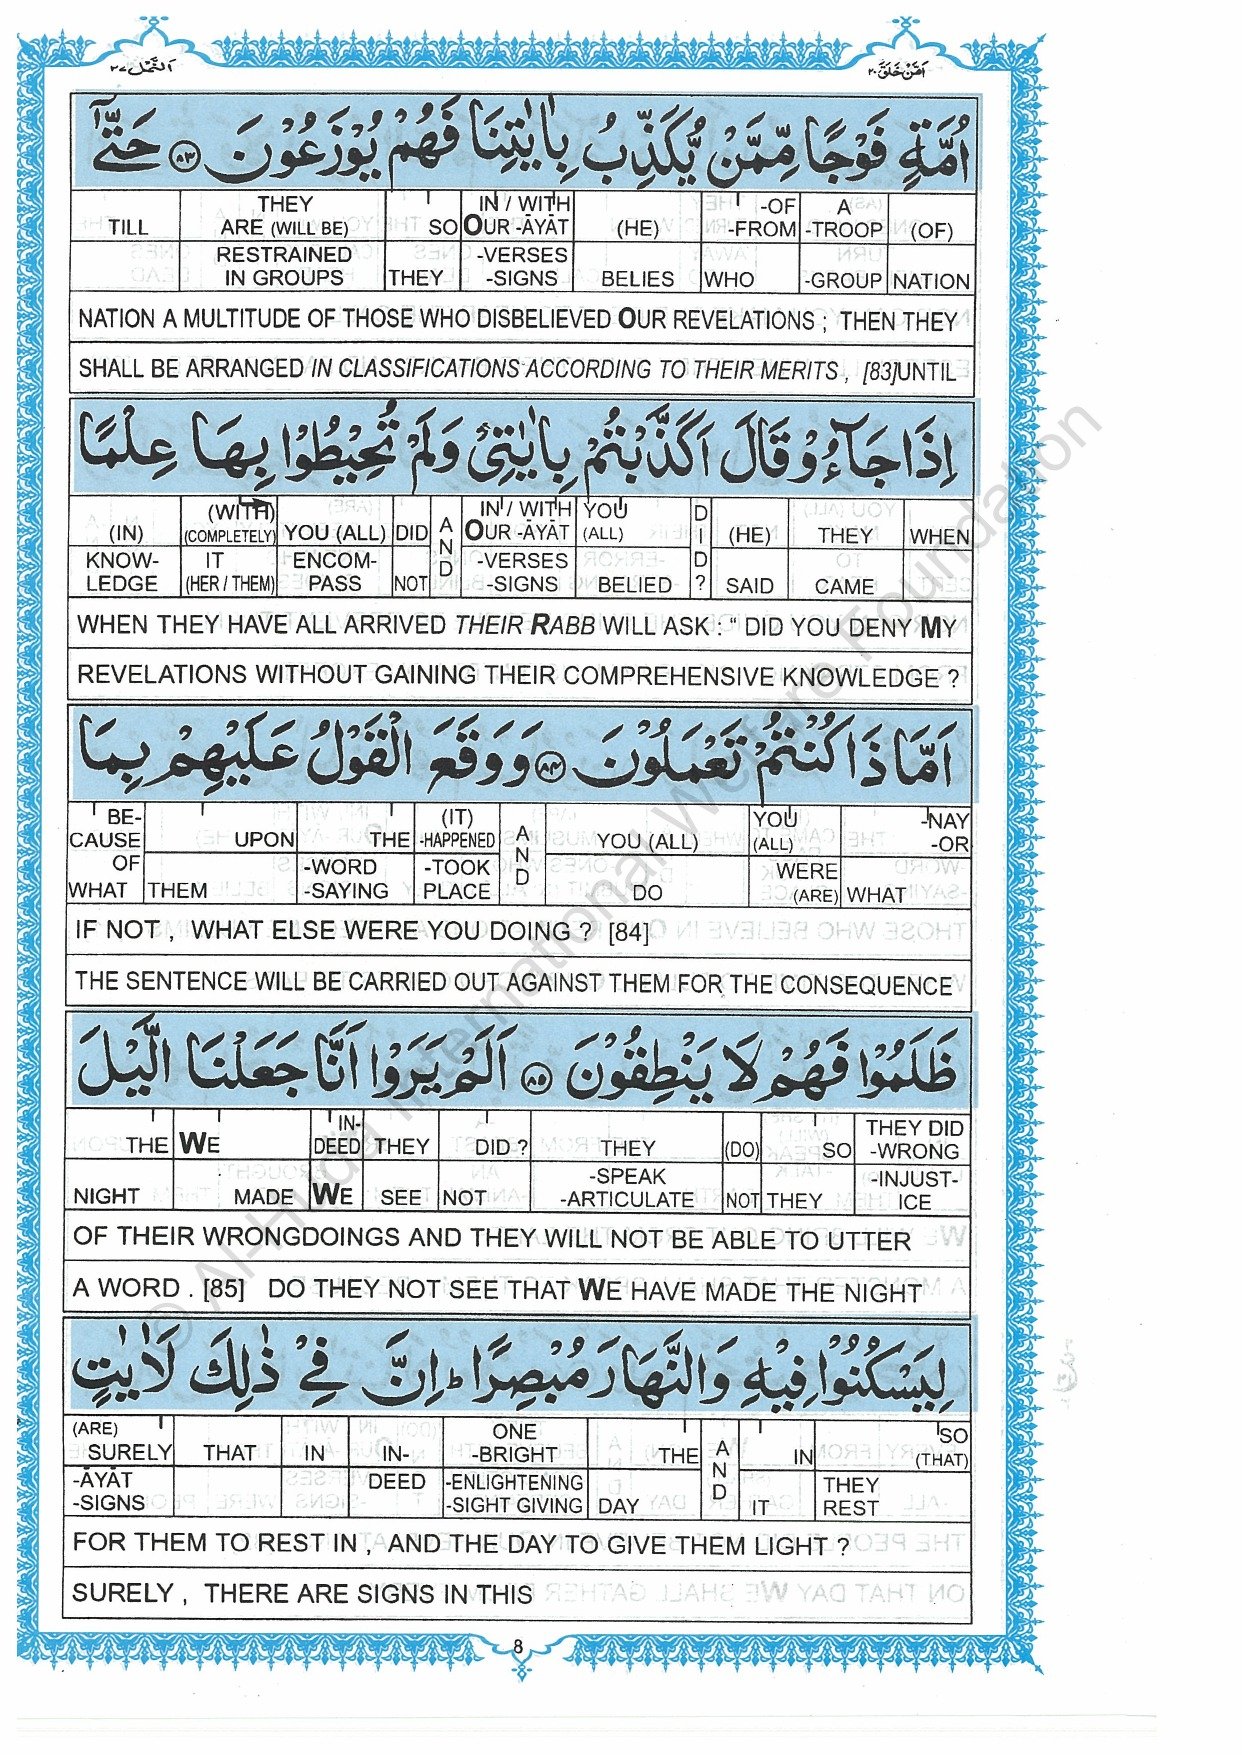 اَلنَّمْل ٢٧
اَمَّنْ خَلَقَ ٢٠
اُمَّةٍ فَوْجًا مِّمَّنْ يُّكَذِّبُ بِاٰيٰتِنَا فَهُمْ يُوْزَعُوْنَ ﴿٨٣﴾ حَتّٰٓى
TILL | THEY ARE (WILL BE) | SO | IN / WITH OUR -ĀYĀT | (HE) | -OF -FROM | A -TROOP | (OF)
RESTRAINED IN GROUPS | THEY | -VERSES -SIGNS | BELIES | WHO | -GROUP | NATION
NATION A MULTITUDE OF THOSE WHO DISBELIEVED OUR REVELATIONS ; THEN THEY
SHALL BE ARRANGED IN CLASSIFICATIONS ACCORDING TO THEIR MERITS , [83]UNTIL
اِذَا جَآءُوْ قَالَ اَكَذَّبْتُمْ بِاٰيٰتِيْ وَلَمْ تُحِيْطُوْا بِهَا عِلْمًا
(IN) | (WITH) (COMPLETELY) | YOU (ALL) | DID | AND | IN / WITH OUR -ĀYĀT | YOU (ALL) | DID? | (HE) | THEY | WHEN
KNOW-LEDGE | IT (HER / THEM) | ENCOM-PASS | NOT | -VERSES -SIGNS | BELIED | SAID | CAME
WHEN THEY HAVE ALL ARRIVED THEIR RABB WILL ASK : “ DID YOU DENY MY
REVELATIONS WITHOUT GAINING THEIR COMPREHENSIVE KNOWLEDGE ?
اَمَّا ذَا كُنْتُمْ تَعْمَلُوْنَ ﴿٨٤﴾ وَوَقَعَ الْقَوْلُ عَلَيْهِمْ بِمَا
BE-CAUSE | UPON | THE | (IT) -HAPPENED | AND | YOU (ALL) | YOU (ALL) | -NAY -OR
OF WHAT | THEM | -WORD -SAYING | -TOOK PLACE | DO | WERE (ARE) | WHAT
IF NOT , WHAT ELSE WERE YOU DOING ? [84]
THE SENTENCE WILL BE CARRIED OUT AGAINST THEM FOR THE CONSEQUENCE
ظَلَمُوْا فَهُمْ لَا يَنْطِقُوْنَ ﴿٨٥﴾ اَلَمْ يَرَوْا اَنَّا جَعَلْنَا الَّيْلَ
THE | WE | IN-DEED | THEY | DID ? | THEY | (DO) | SO | THEY DID -WRONG
NIGHT | MADE | WE | SEE | NOT | -SPEAK -ARTICULATE | NOT | THEY | -INJUST-ICE
OF THEIR WRONGDOINGS AND THEY WILL NOT BE ABLE TO UTTER
A WORD . [85] DO THEY NOT SEE THAT WE HAVE MADE THE NIGHT
لِيَسْكُنُوْا فِيْهِ وَالنَّهَارَ مُبْصِرًا ؕ اِنَّ فِيْ ذٰلِكَ لَاٰيٰتٍ
(ARE) SURELY | THAT | IN | IN- | ONE -BRIGHT | THE | AND | IN | SO (THAT)
-ĀYĀT -SIGNS | DEED | -ENLIGHTENING -SIGHT GIVING | DAY | IT | THEY REST
FOR THEM TO REST IN , AND THE DAY TO GIVE THEM LIGHT ?
SURELY , THERE ARE SIGNS IN THIS
8
© Al-Huda International Welfare Foundation